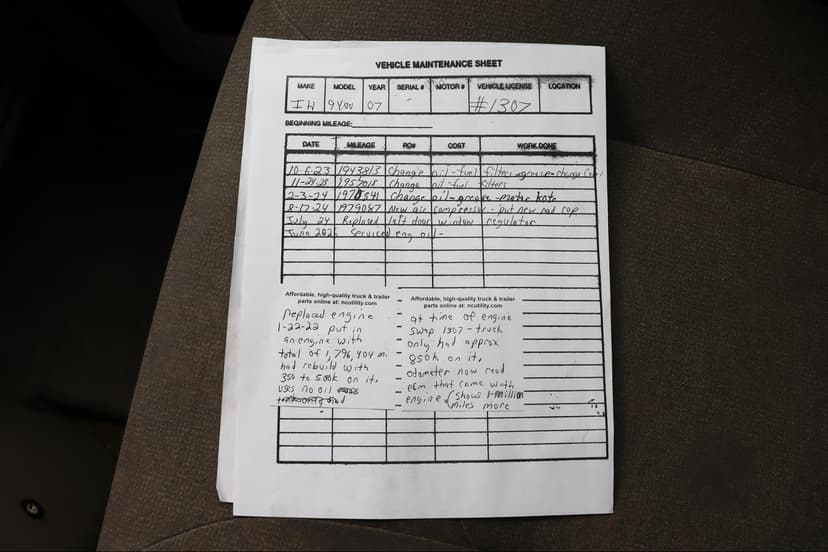 VEHICLE MAINTENANCE SHEET
MAKE MODEL YEAR SERIAL # MOTOR # VEHICLE LICENSE LOCATION
IH 9400 07 - #1307
BEGINNING MILEAGE:
DATE MILEAGE PO# COST WORK DONE
10-6-23 1943813 Change oil-fuel filters-grease-change
11-24-23 Change oil-fuel filters
2-3-24 Change oil-grease-motor
8-17-24 1979087 New air compressor - put new rad cap
July 24 Replaced left door window regulator
June Serviced eng oil-
Affordable, high-quality truck & trailer
parts online at: ncutility.com
Replaced engine
1-22-22 put in
an engine with
total of 1,796,404 m.
had rebuild with
350 to 500k on it,
uses no oil
Affordable, high-quality truck & trailer
parts online at: ncutility.com
at time of engine
swap 1307-truck
only had approx
850k on it,
odometer now read
ecm that came with
engine (shows 1-million
miles more